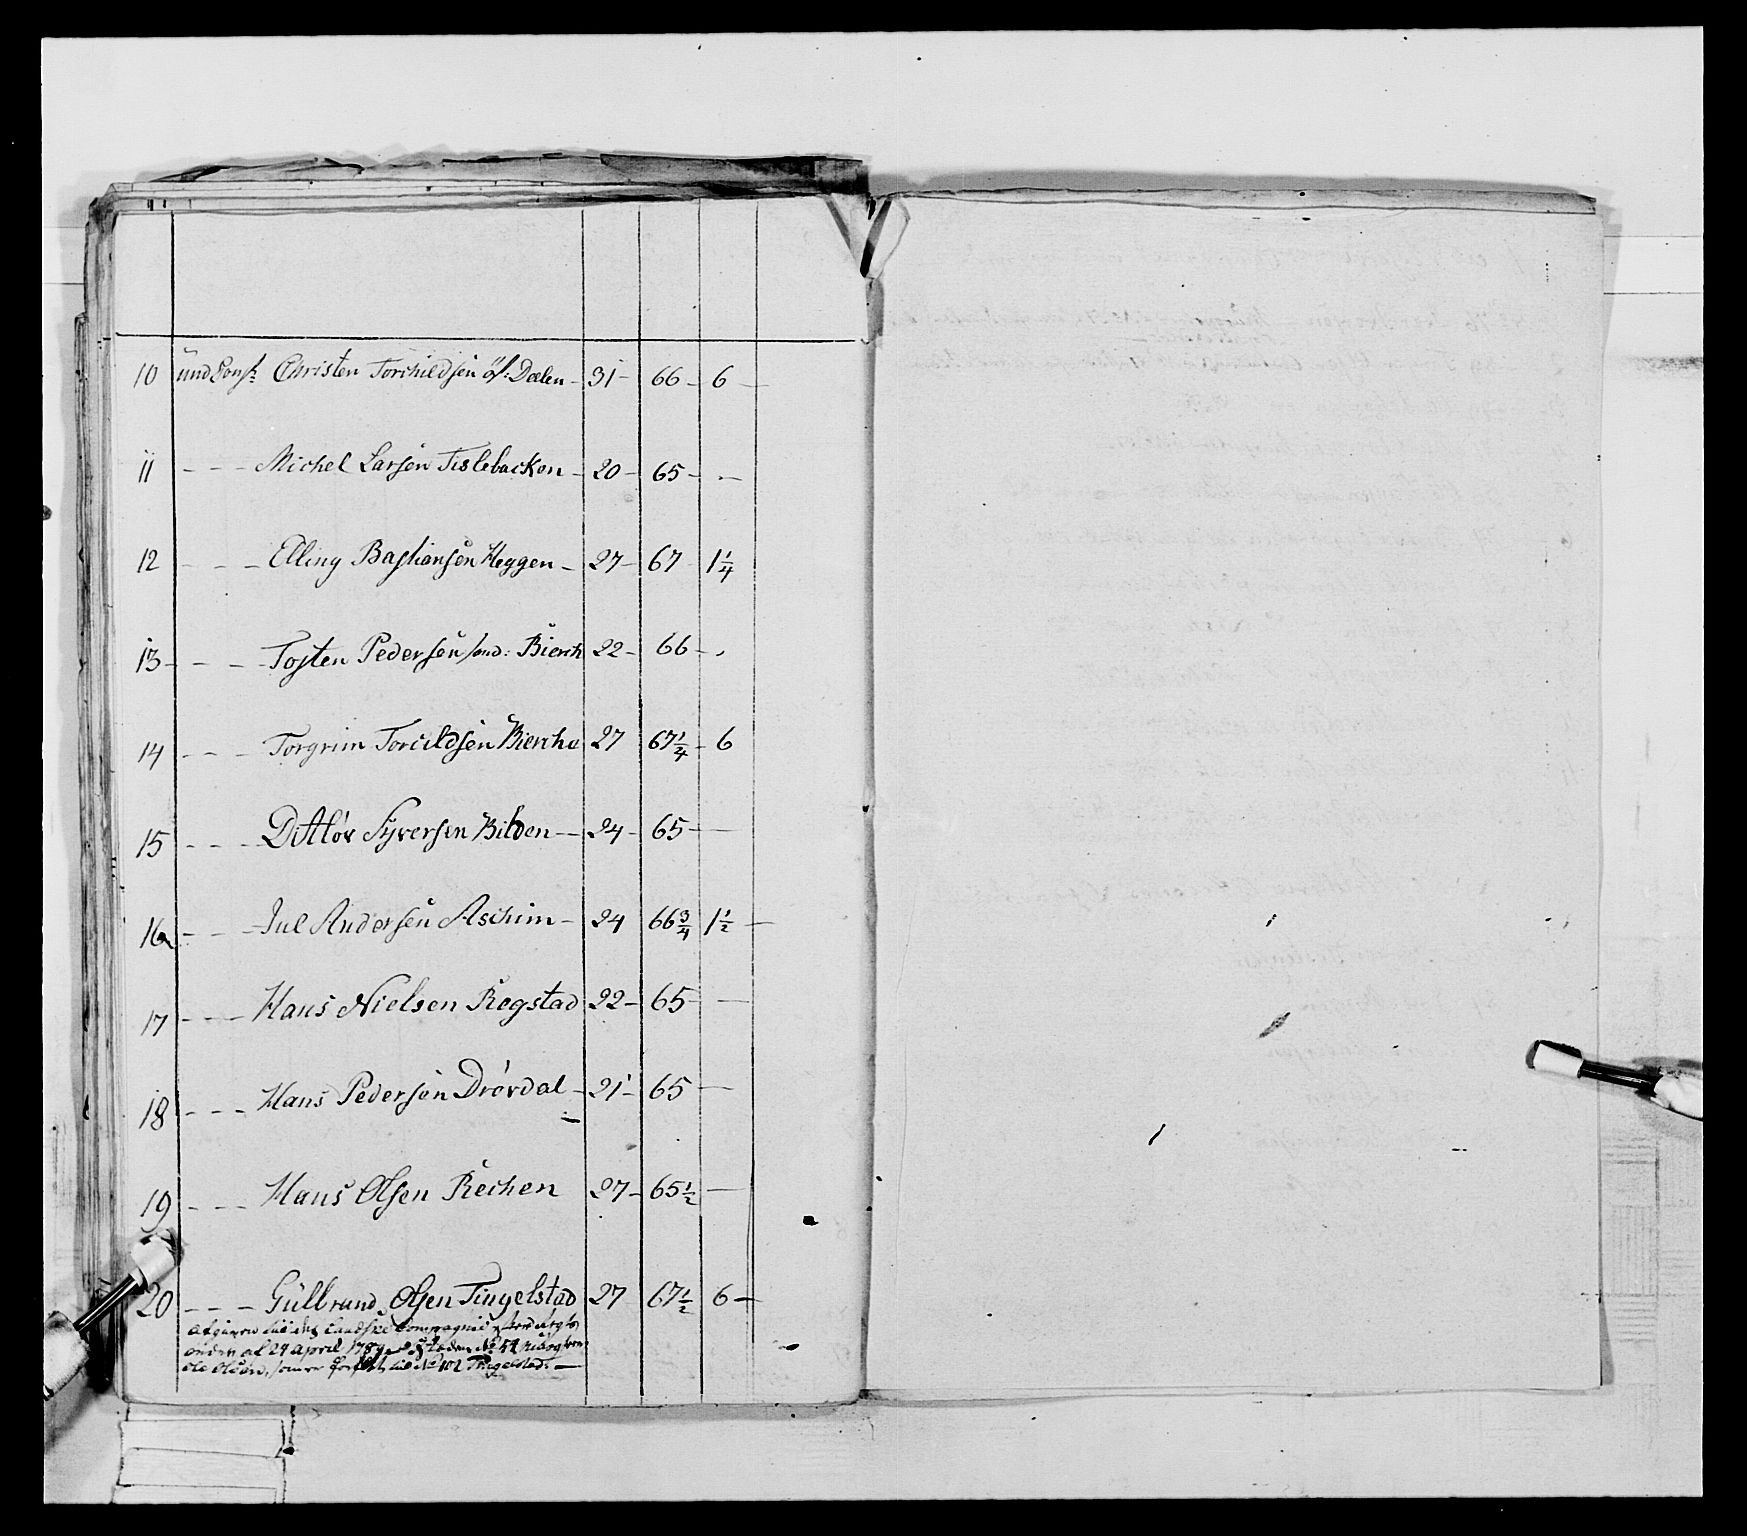 10 Christen Torchildsen öf: Dælen – 31 – 66 – 6 –
11 – – – Michel Larsen Tislebacken – 20 – 65 – . –
12 – – – Elling Bastiansen Heggen – 27 – 67 1 1/4
13 – – – Tosten Pedersen sønd: Bierch 22 – 66 – .
14 – – – Torgrim Torcildsen Bierche 27 67 1/4 – 6
15 – – – Ditlóv Syversen Bilden – 24 – 65 – –
16 – – – Jul Andersen Aschim – 24 66 3/4 1 1/2 –
17 – – – Hans Nielsen Rogstad 22 – 65 –
18 – – – Hans Pedersen Dróvdal – 21 – 65 –
19 – – – Hans Olsen Rechen 27 – 65 1/2 –
20 – – – Güllbrand Olsen Tingelstad 27 67 1/2 6 –
Compagnie
24 april 1789 No 54
Ole Olsen, No 102 Tingelstad. –